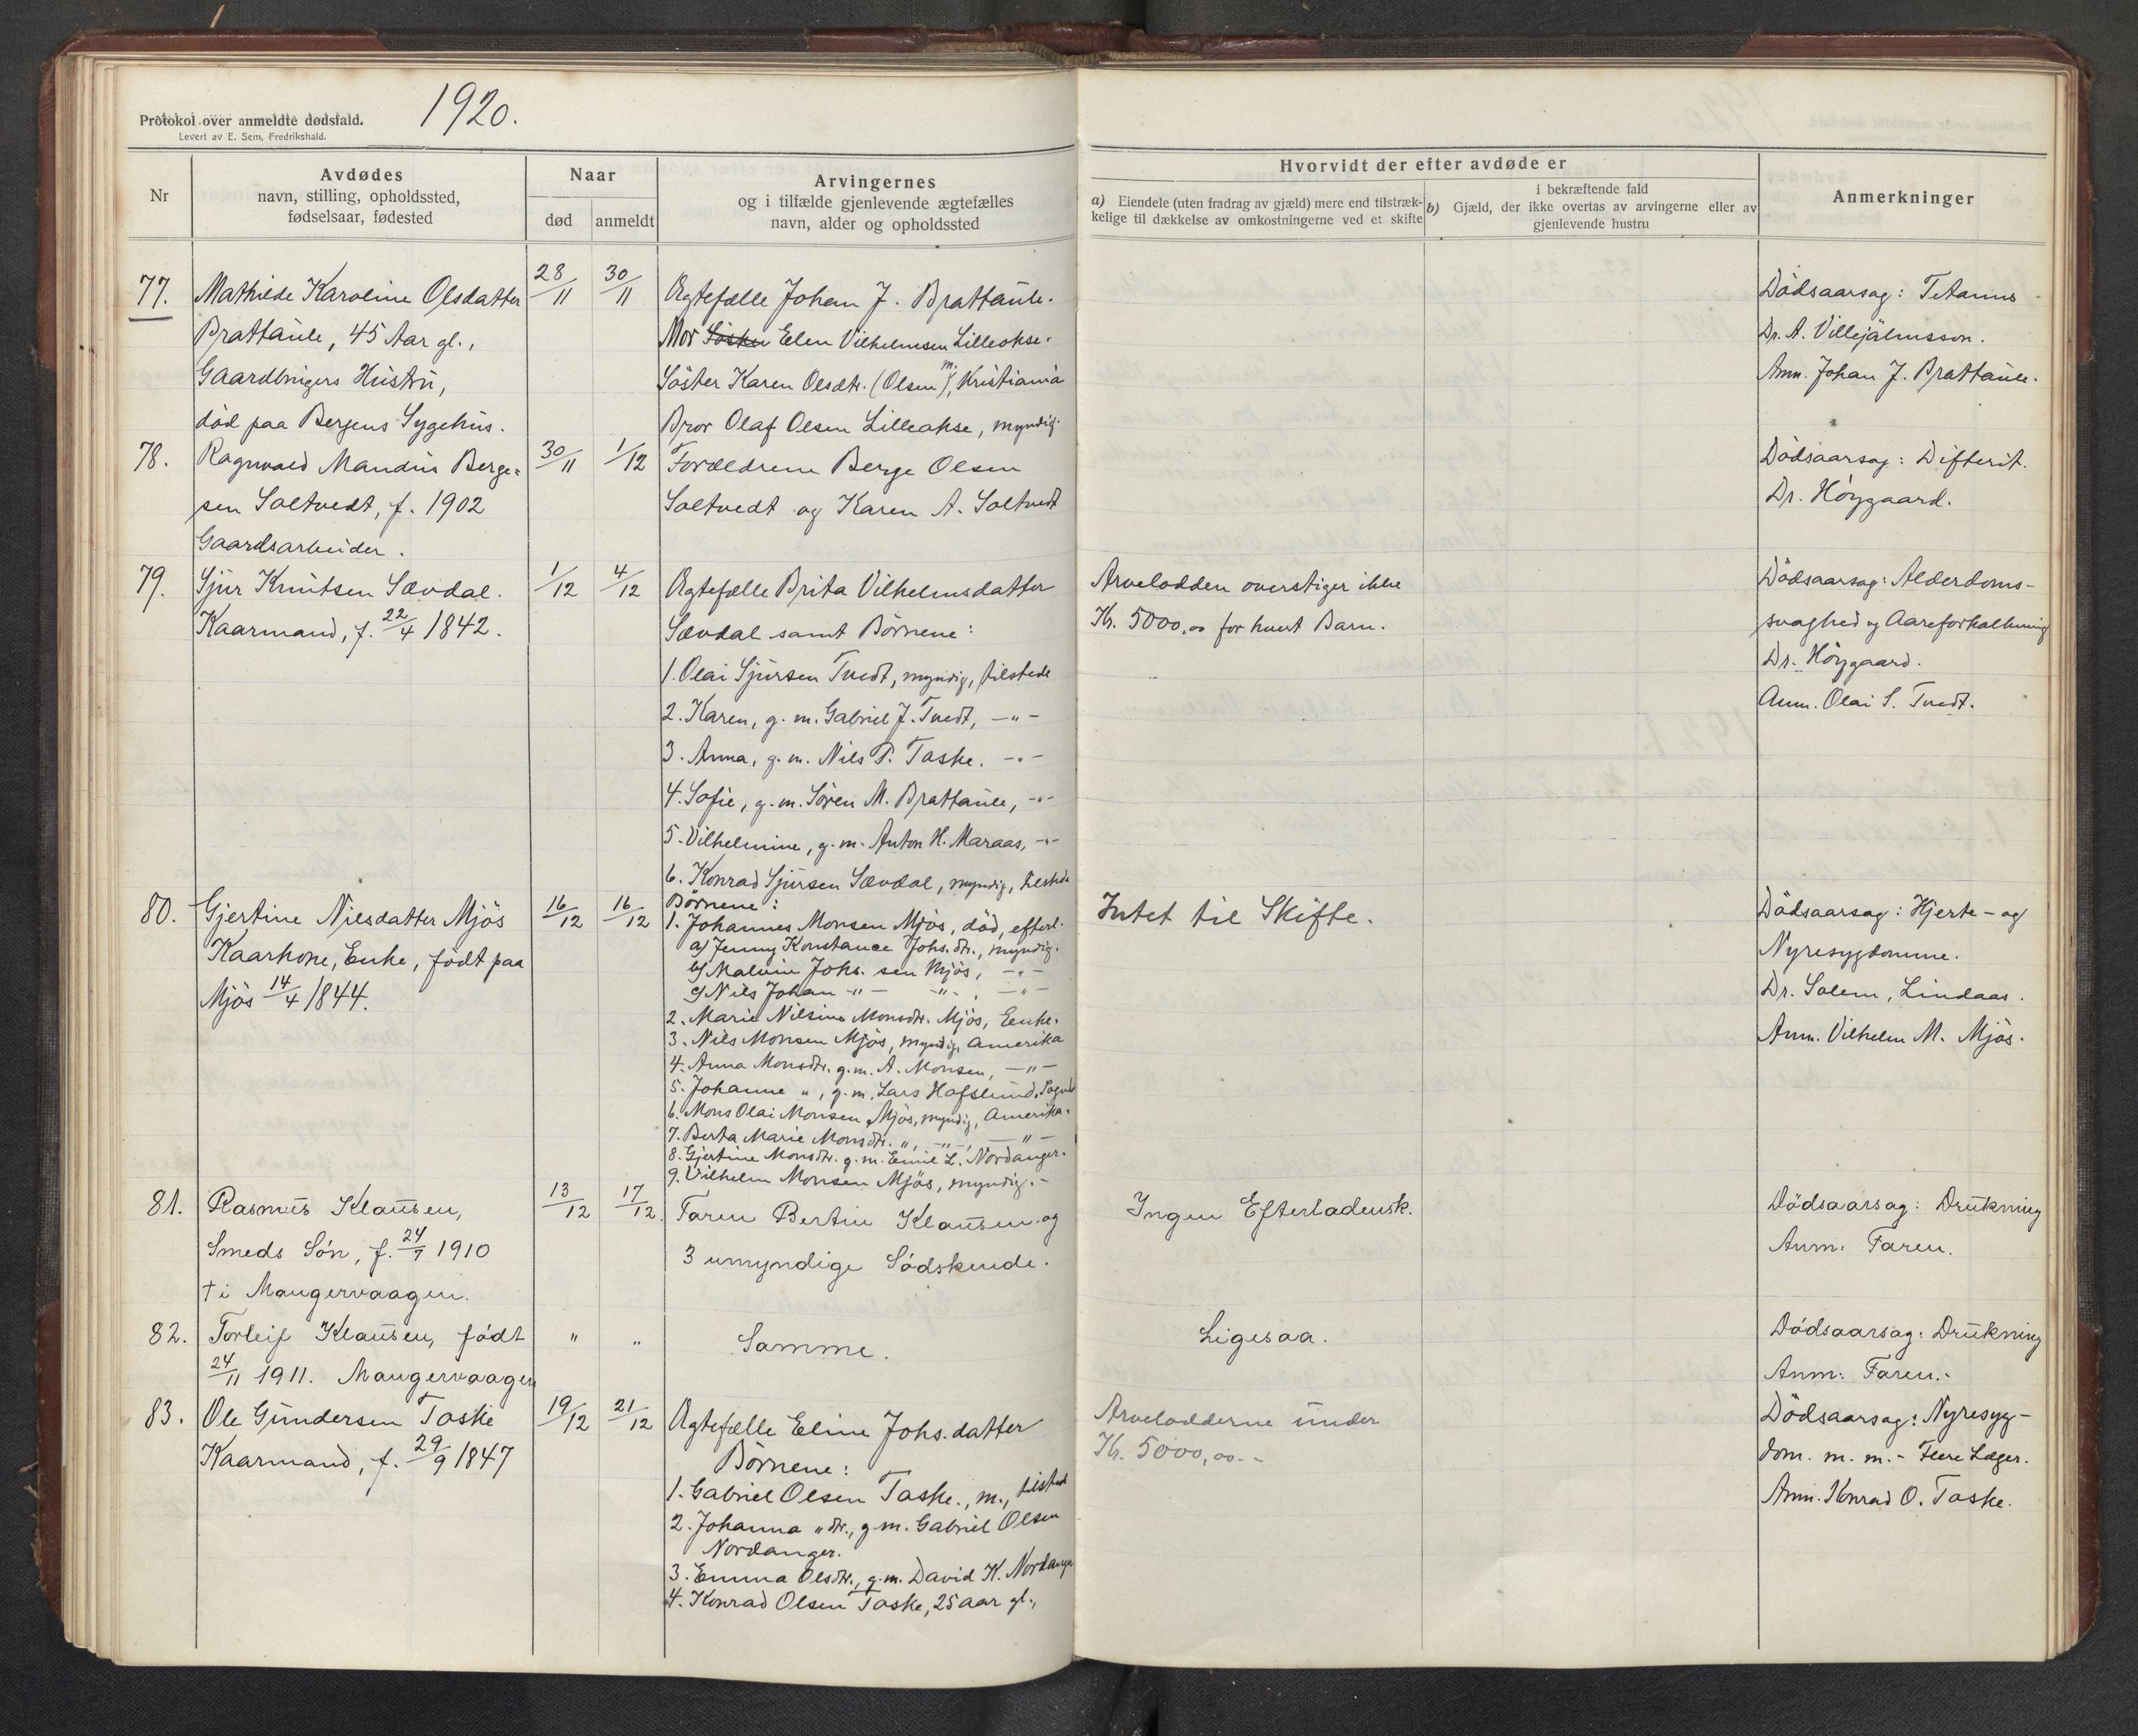 1920.
Protokol over anmeldte dødsfald.
Levert av E. Sem, Fredrikshald.
Nr
Avdødes
navn, stilling, opholdssted,
fødselsaar, fødested
Naar
død
anmeldt
Arvingernes
og i tilfælde gjenlevende ægtefælles
navn, alder og opholdssted
Hvorvidt der efter avdøde er
a) Eiendele (uten fradrag av gjæld) mere end tilstræk-
kelige til dækkelse av omkostningerne ved et skifte
i bekræftende fald
b) Gjæld, der ikke overtas av arvingerne eller av
gjenlevende hustru
Anmerkninger
77.
Mathilde Karoline Olsdatter
Brattaule, 45 Aar gl.,
Gaardbrugers Hustru,
död paa Bergens Sygehus.
28/11
30/11
Ægtefælle Johan J. Brattaule.
Mor Elen Vilhelmsen Lilleokse.
Söster Karen Olsdtr. (Olsen), m. Kristiania
Bror Olaf Olsen Lilleokse, myndig.
Dödsaarsag: Tetanus
Dr. A. Villejälmsson.
Anm. Johan J. Brattaule.
78.
Ragnvald Mandius Berge=
sen Soltvedt, f. 1902
Gaardsarbeider.
30/11
1/12
Forældrene Berge Olsen
Soltvedt og Karen A. Soltvedt
Dödsaarsag: Difterit.
Dr. Höygaard.
79.
Sjur Knutsen Sævdal.
Kaarmand, f. 22/4 1842.
1/12
4/12
Ægtefælle Brita Vilhelmsdatter
Sævdal samt Börnene:
1. Olai Sjursen Tvedt, myndig, tilstede
2. Karen, g. m. Gabriel J. Tvedt, —"—
3. Anna, g. m. Nils P. Toske. —"—
4. Sofie, g. m. Sören M. Brattaule, —"—
5. Vilhelmine, g. m. Anton H. Maraas, —"—
6. Konrad Sjursen Sævdal, myndig, tilstede
Arvelodden overstiger ikke
Kr. 5000,00 for hvert Barn.
Dödsaarsag: Alderdoms-
svaghed og Aareforkalkning
Dr. Höygaard.
Anm. Olai S. Tvedt.
80.
Gjertine Nilsdatter Mjös
Kaarkone, Enke, født paa
Mjös 14/4 1844.
16/12
16/12
Börnene:
1. Johannes Monsen Mjös, död, efterl.
a) Jenny Konstance Johs. dtr., myndig.
b) Malvin Johs. sen Mjös, —"—
c) Nils Johan —"— —"—, —"—
2. Marie Nilsine Monsdtr. Mjös, Enke.
3. Nils Monsen Mjös, myndig, Amerika
4. Anna Monsdtr. g. m. A. Monsen, —"—
5. Johanne ", g. m. Lars Hafslund, Sogndal
6. Mons Olai Monsen Mjös, myndig, Amerika.
7. Berta Marie Monsdtr. ", —"—, —"—
8. Gjertine Monsdtr. g. m. Emil L. Nordanger.
9. Vilhelm Monsen Mjös, myndig.-
Intet til Skifte.
Dödsaarsag: Hjerte- og
Nyresygdomme.
Dr. Solem, Lindaas.
Anm. Vilhelm M. Mjös.
81.
Rasmus Klausen,
Smeds Sön, f. 24/7 1910
† i Mangervaagen.
13/12
17/12.
Faren Bertin Klausen og
3 umyndige Södskende.
Ingen Efterladensk.
Dödsaarsag: Drukning
Anm: Faren.
82.
Torleif Klausen, födt
24/11 1911. Mangervaagen
"
"
Samme.
Ligesaa.
Dödsaarsag: Drukning
Anm: Faren.-
83.
Ole Gundersen Toske
Kaarmand, f. 29/9 1847
19/12
21/12
Ægtefælle Eline Johs. datter
Börnene:
1. Gabriel Olsen Toske., m., tilsted
2. Johanna " dtr., g. m. Gabriel Olsen
Nordanger.
3. Emma Olsdtr., g. m. David K. Nordanger
4. Konrad Olsen Toske, 25 aar gl.,
Arvelodderne under
Kr. 5000,00.-
Dödsaarsag: Nyresyg-
dom. m. m. - Flere Læger.
Anm. Konrad O. Toske.